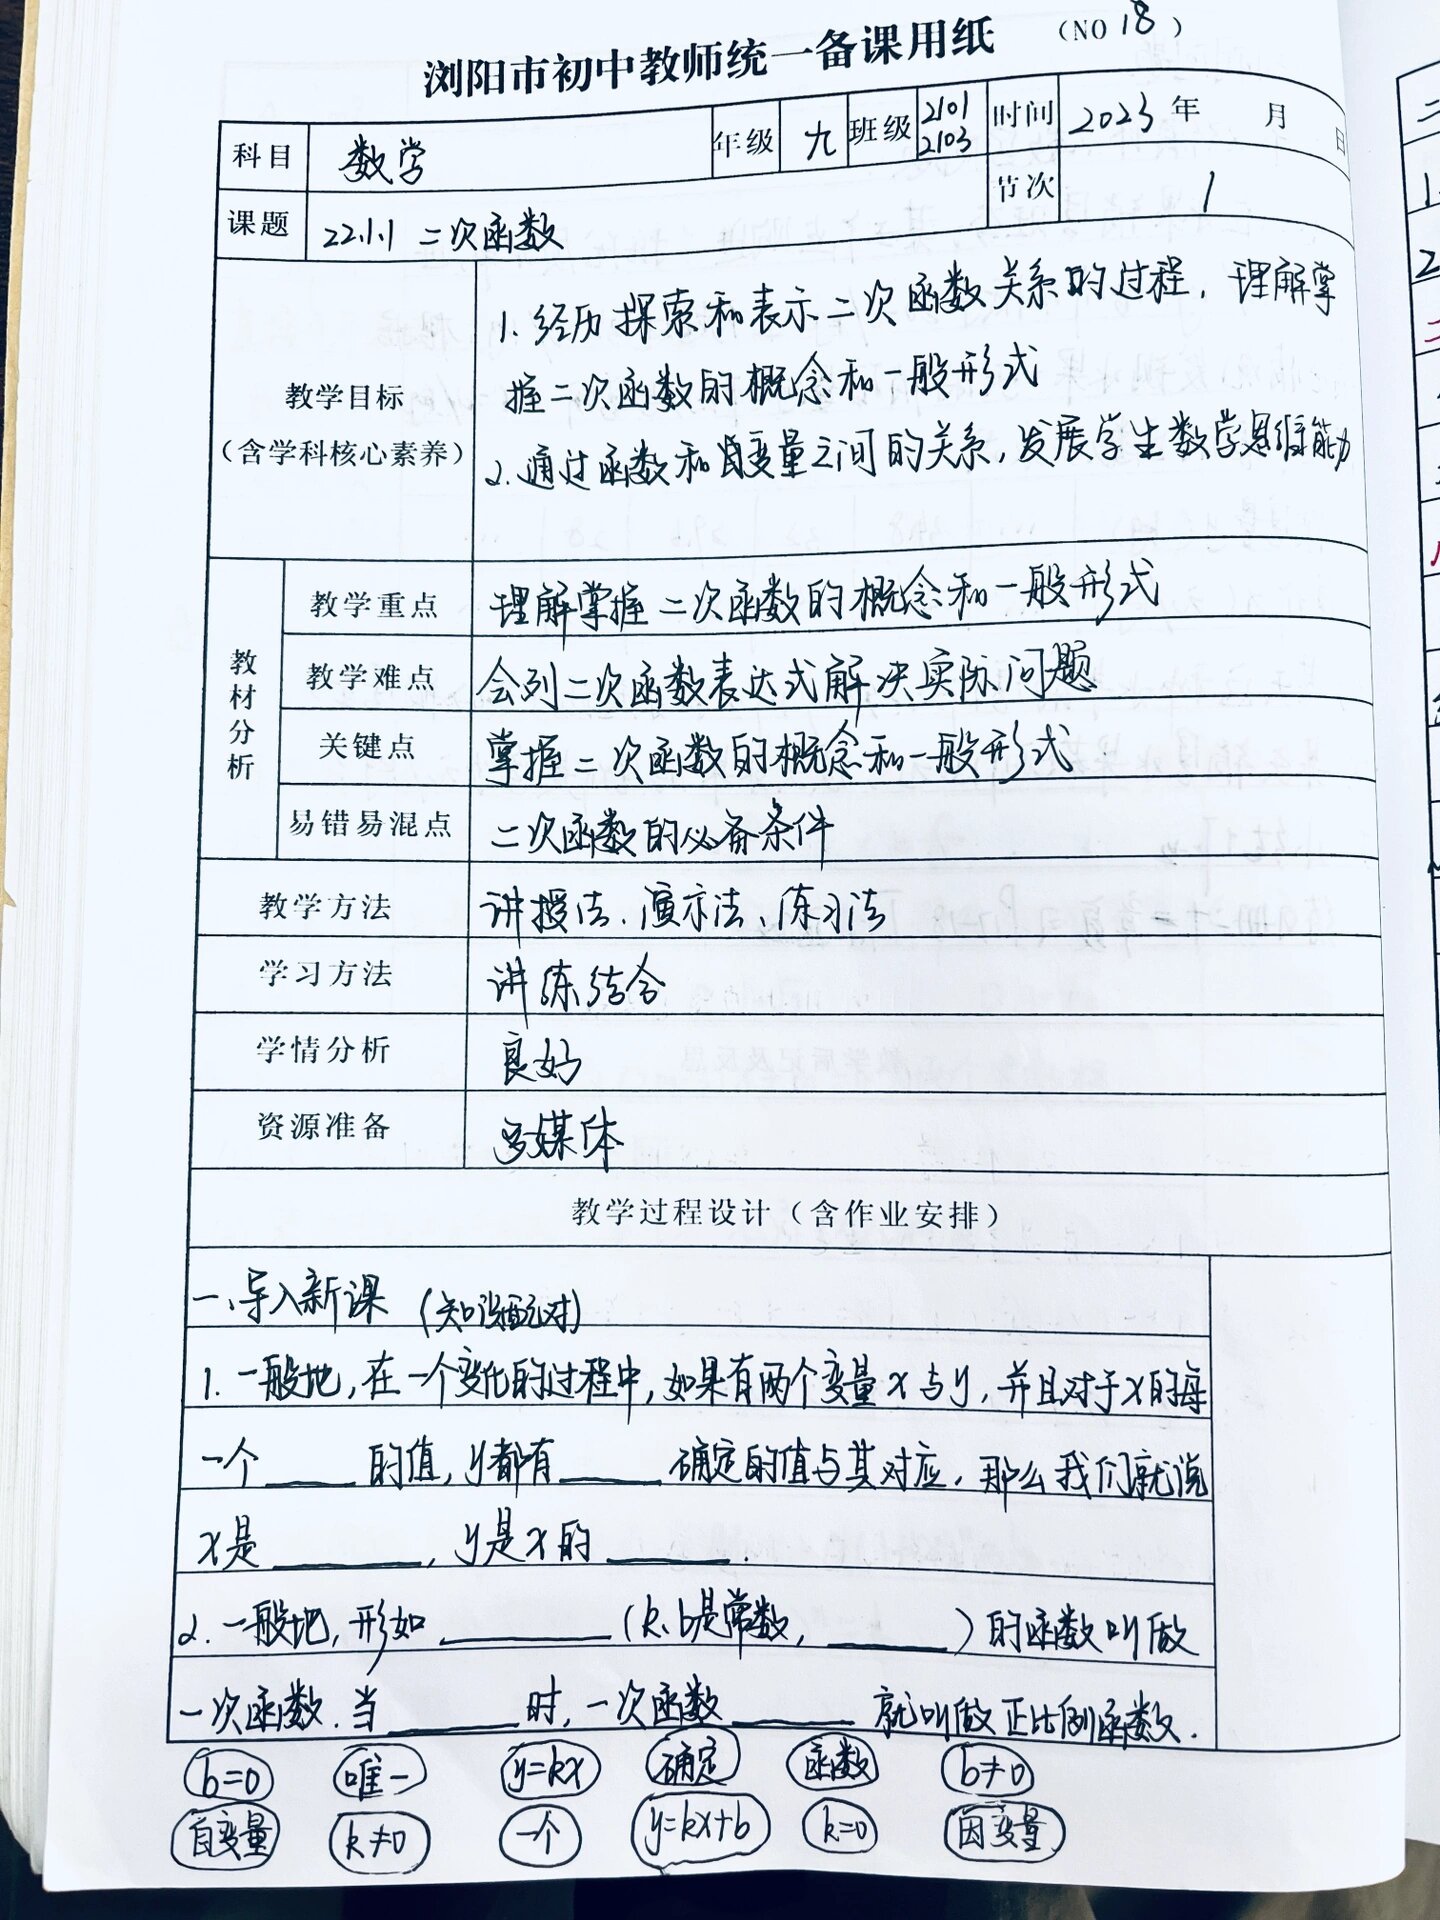 浏阳市初中教师统一备课用纸 （NO 18）
科目 数学 年级 九 班级 2101 2103 时间 2023 年 月 日
课题 22.1.1 二次函数 节次 1
教学目标
（含学科核心素养）
1. 经历探索和表示二次函数关系的过程，理解掌
握二次函数的概念和一般形式
2. 通过函数和自变量之间的关系，发展学生数学思维能力
教材分析
教学重点 理解掌握二次函数的概念和一般形式
教学难点 会列二次函数表达式解决实际问题
关键点 掌握二次函数的概念和一般形式
易错易混点 二次函数的必备条件
教学方法 讲授法、演示法、练习法
学习方法 讲练结合
学情分析 良好
资源准备 多媒体
教学过程设计（含作业安排）
一、导入新课（知识配对）
1. 一般地，在一个变化的过程中，如果有两个变量x与y，并且对于x的每
一个____的值，y都有____确定的值与其对应，那么我们就说
x是______，y是x的_____.
2. 一般地，形如_______（k、b是常数，_____）的函数叫做
一次函数.当_____时，一次函数_____就叫做正比例函数.
b=0 唯一 y=kx 确定 函数 b≠0
自变量 k≠0 一个 y=kx+b k=0 因变量